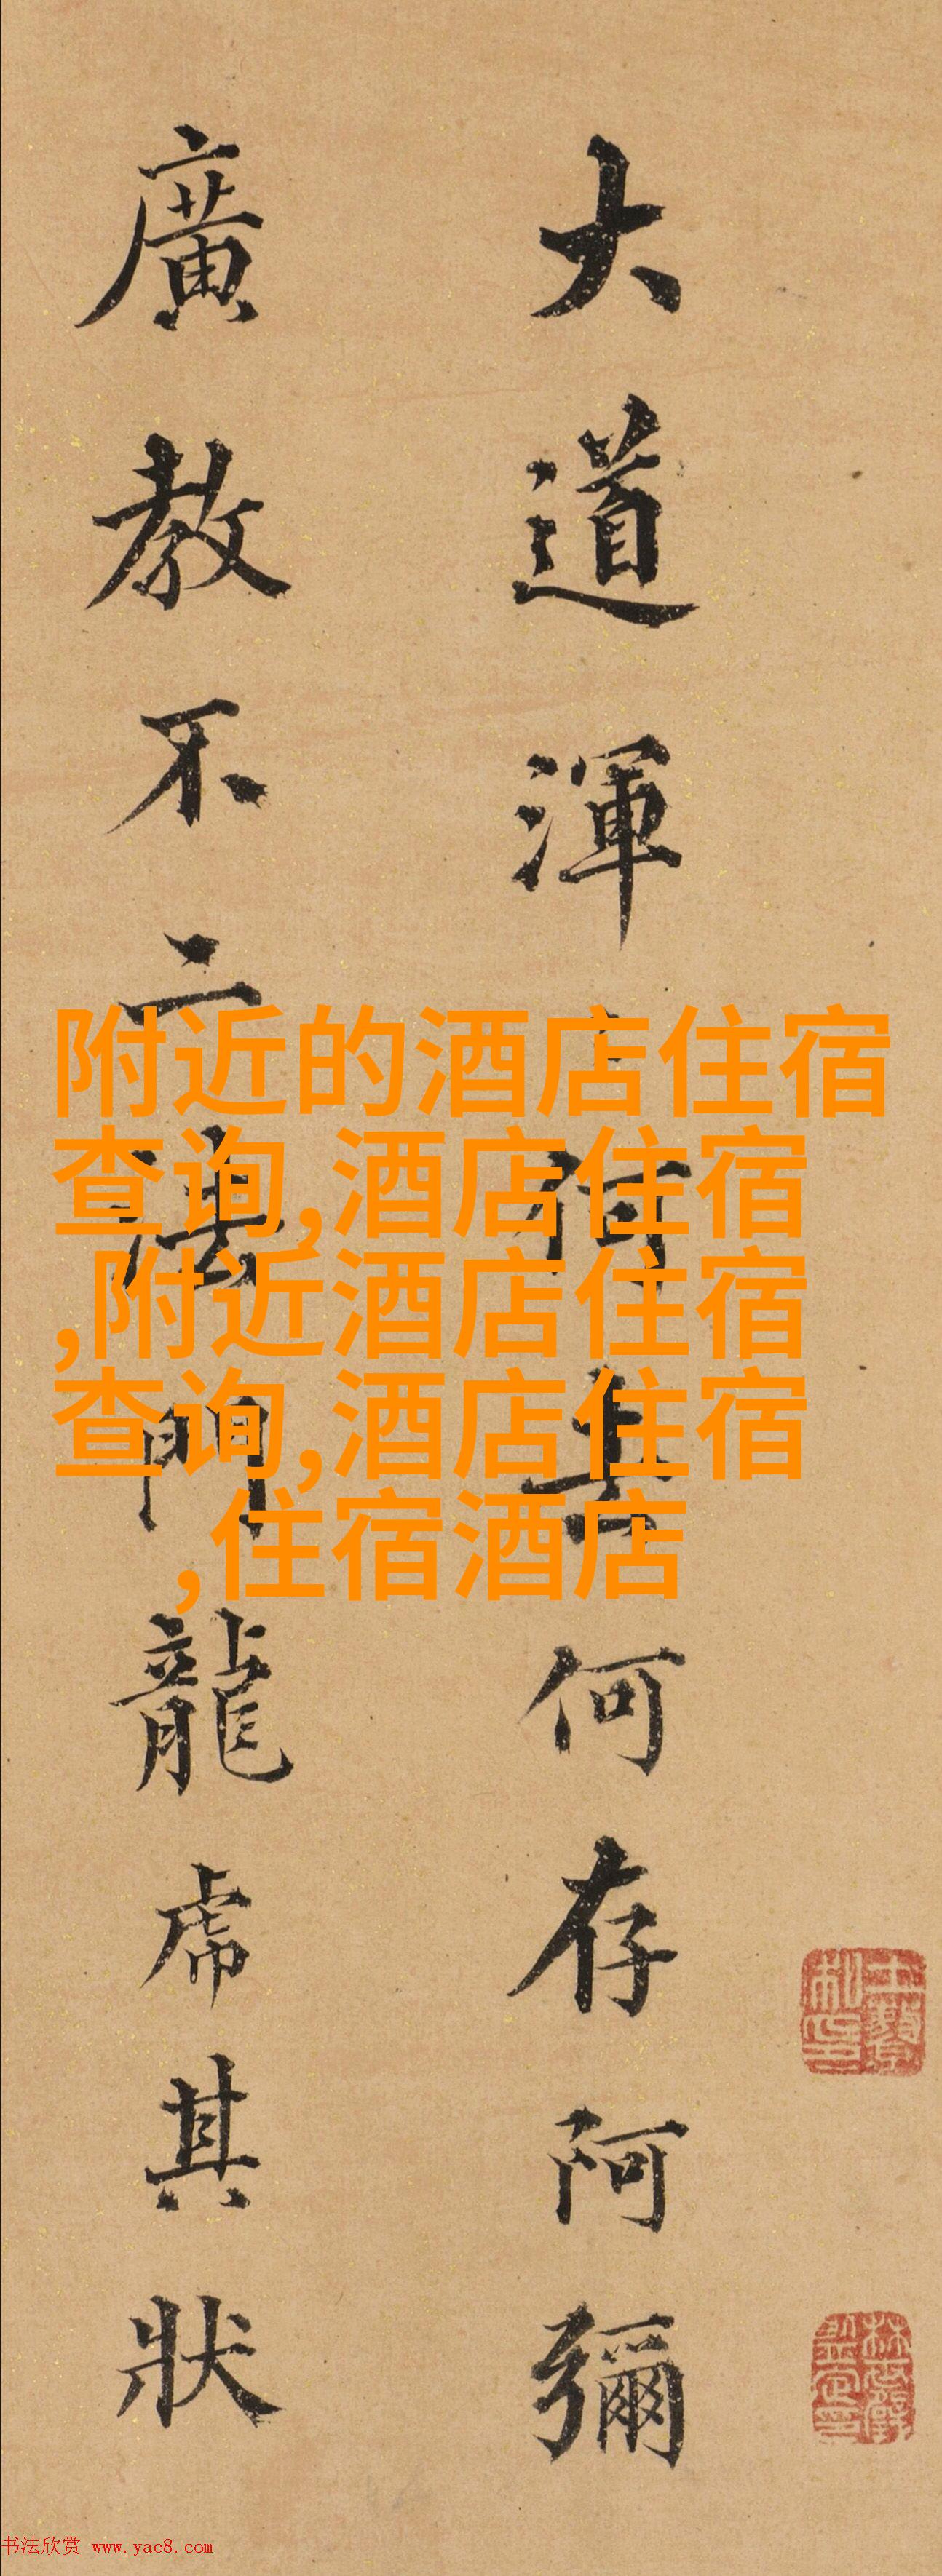 大道渾何存阿彌
廣教不二法門龍虎其狀
附近的酒店住宿
查询,酒店住宿
,附近酒店住宿
查询,酒店住宿
,住宿酒店
书法欣赏 www.yac8.com